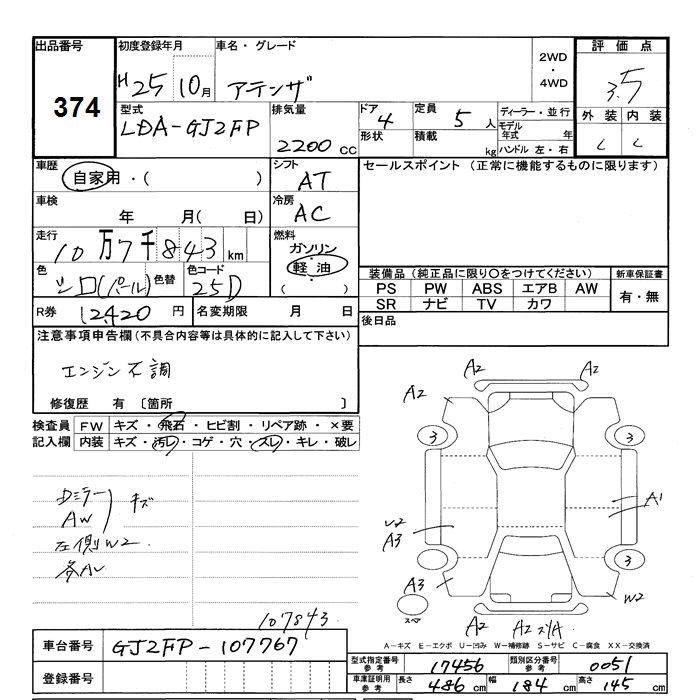 出品番号 初度登録年月 車名・グレード 2WD・4WD 評価点
374 H25 10月 アテンザ 3.5
型式 排気量 ドア 定員 ディーラー・並行 外装 内装
LDA-GJ2FP 2200cc 4 5人 モデル年式 年
形状 積載 kg ハンドル 左・右 C C
車歴 シフト セールスポイント (正常に機能するものに限ります)
自家用・( ) AT
車検 冷房
年 月( 日) AC
走行 燃料
10万7千843km ガソリン
色 色替 色コード 軽油
シロ(パール) 25D ( )
装備品 (純正品に限り○をつけてください) 新車保証書
PS PW ABS エアB AW 有・無
SR ナビ TV カワ
R券 12420円 名変期限 月 日 後日品
注意事項申告欄(不具合内容等は具体的に記入して下さい)
エンジン不調
修復歴 有 〔箇所 〕
検査員 FW キズ・飛石・ヒビ割・リペア跡・×要
記入欄 内装 キズ・汚レ・コゲ・穴・スレ・キレ・破レ
Dミラー
AW キズ
左側W2
各AV
A2 A2
A2 A2
3 3
A1
W2
A3
3
A3 W2
スペア
A2 A2 ズレA
107843
A-キズ E-エクボ U-凹み W-補修跡 S-サビ C-腐食 XX-交換済
車台番号 GJ2FP-107767
登録番号
型式指定番号 参考 17456 類別区分番号 参考 0051
車庫証明用 参考 長さ 486cm 幅 184cm 高さ 145cm